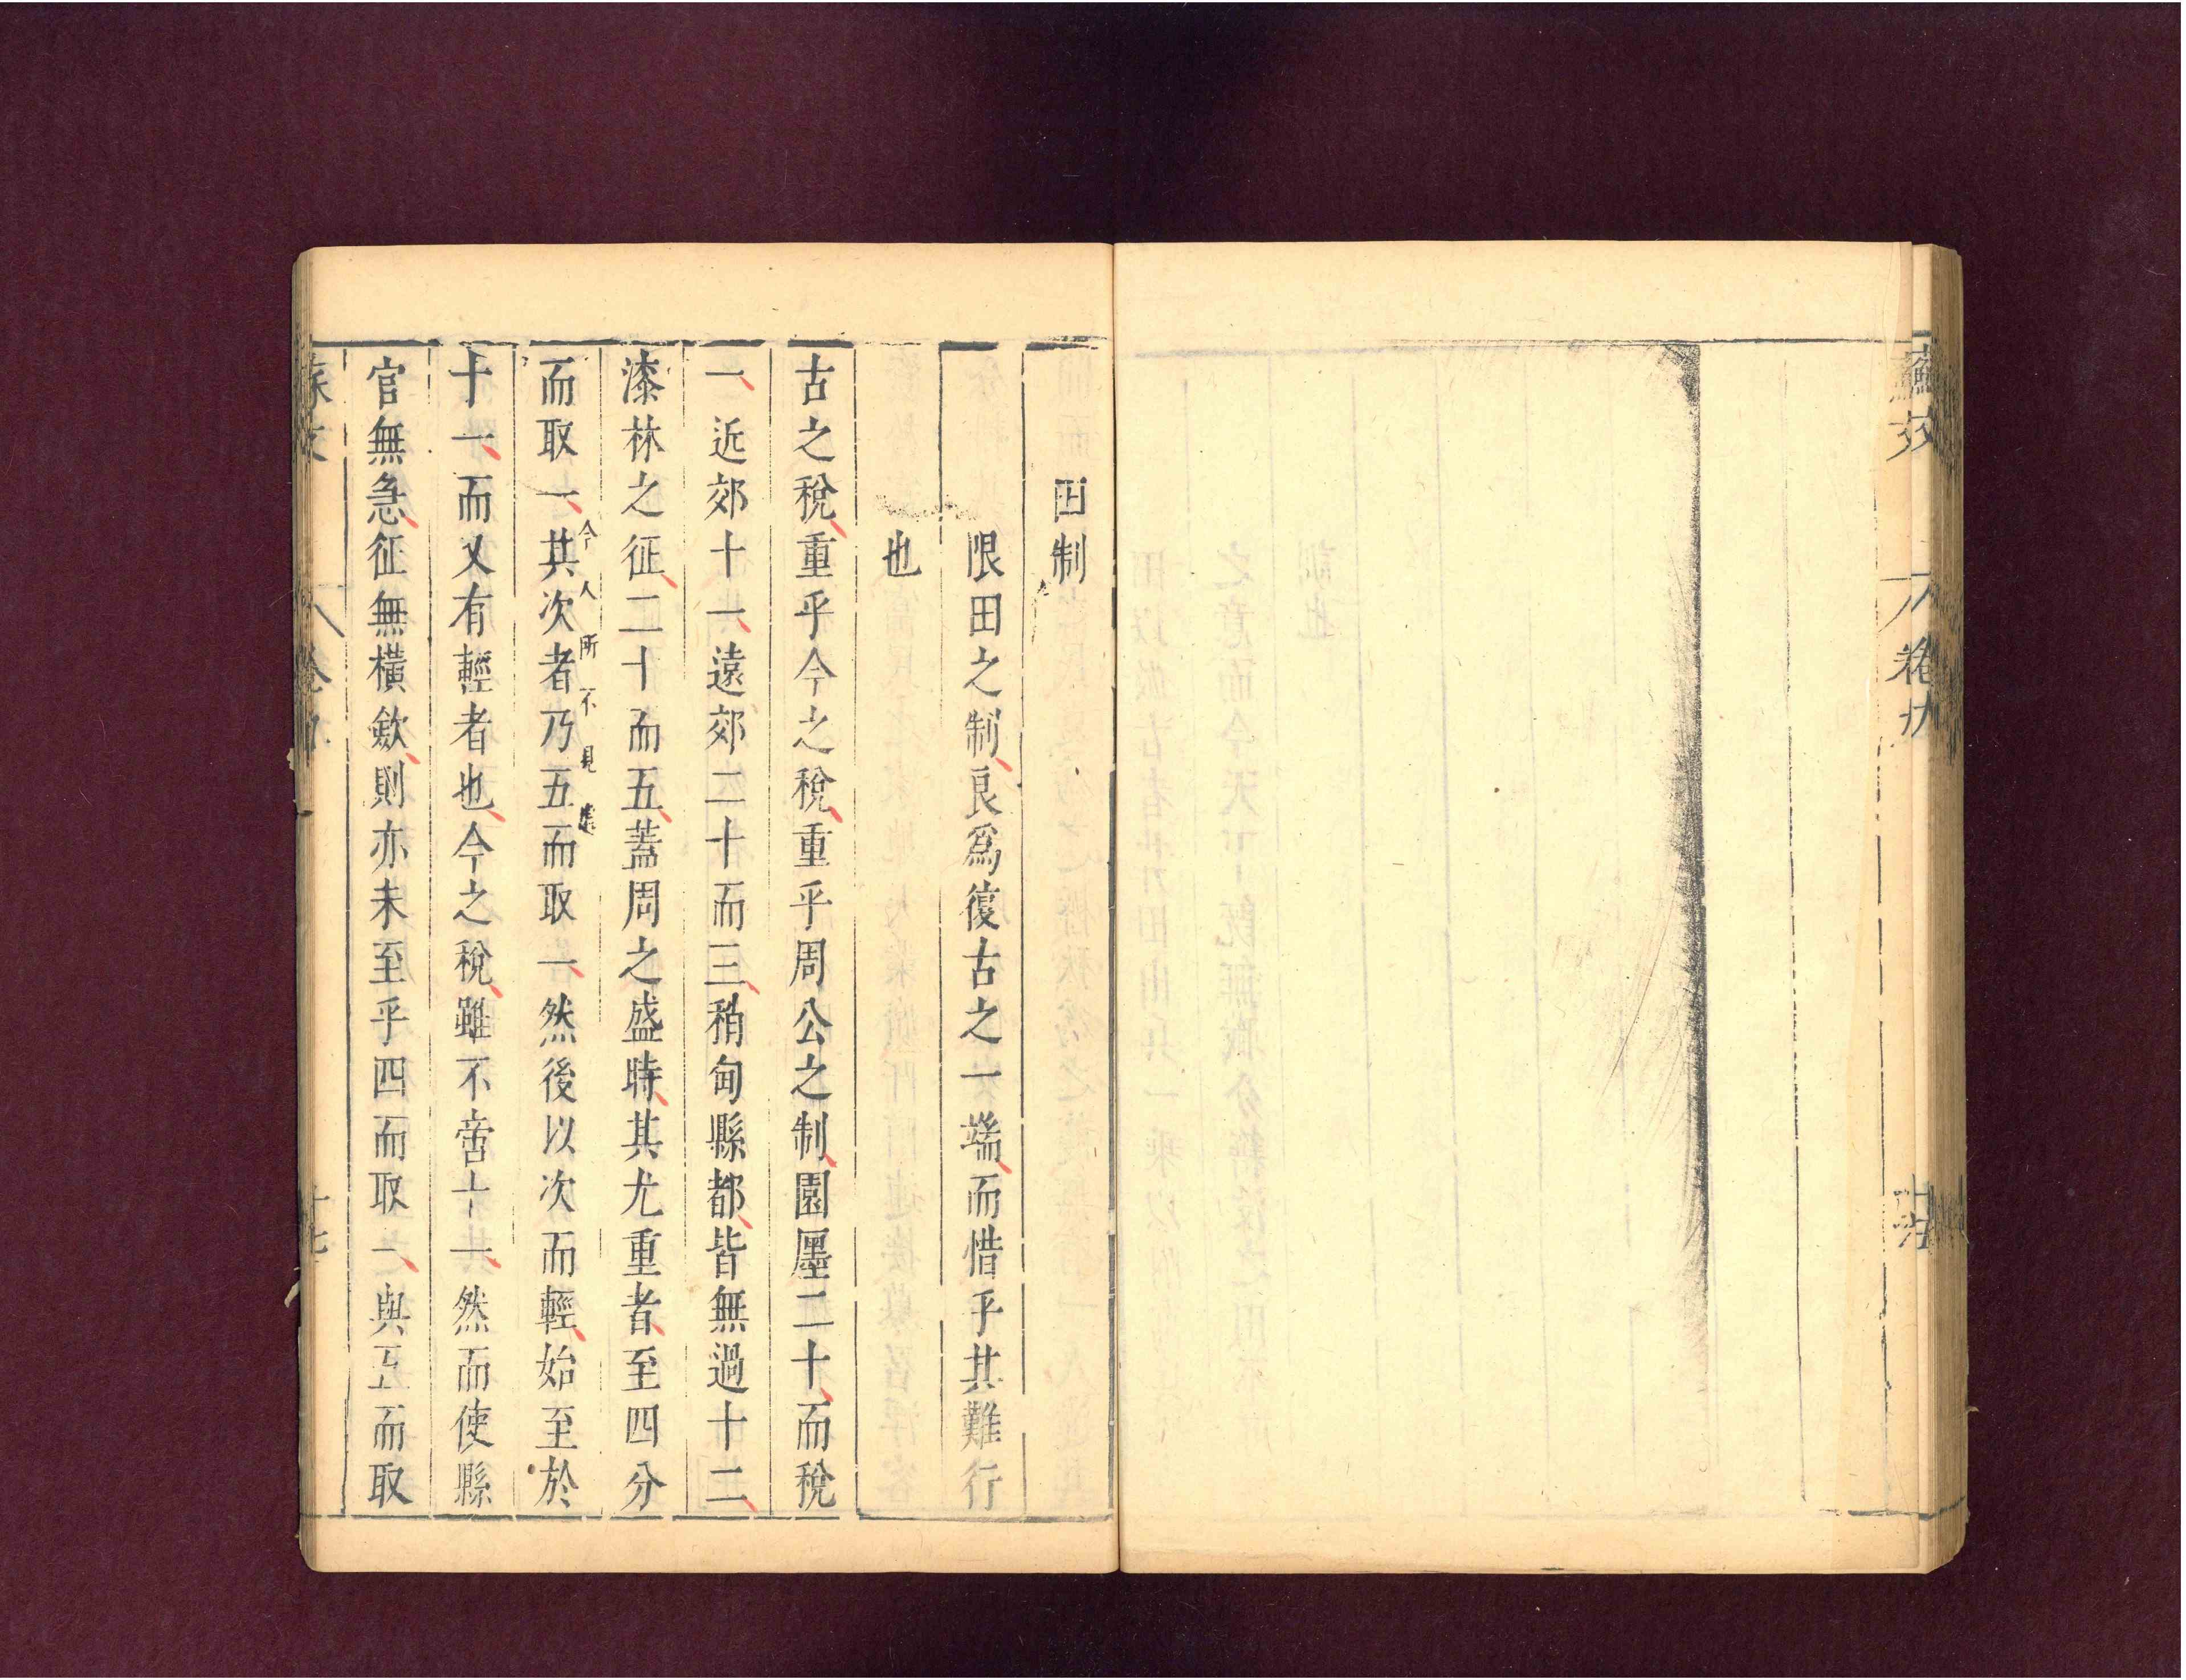 蘇文
卷九
田制
限田之制良爲復古之一端而惜乎其難行
也
古之稅重乎今之稅重乎周公之制園廛二十而稅
一近郊十一遠郊二十而三稍甸縣都皆無過十二
漆林之征二十而五蓋周之盛時其尤重者至四分
而取一其次者乃五而取一然後以次而輕始至於
今人所不見處
十一而又有輕者也今之稅雖不啻十一然而使縣
官無急征無橫歛則亦未至乎四而取一與五而取
十七